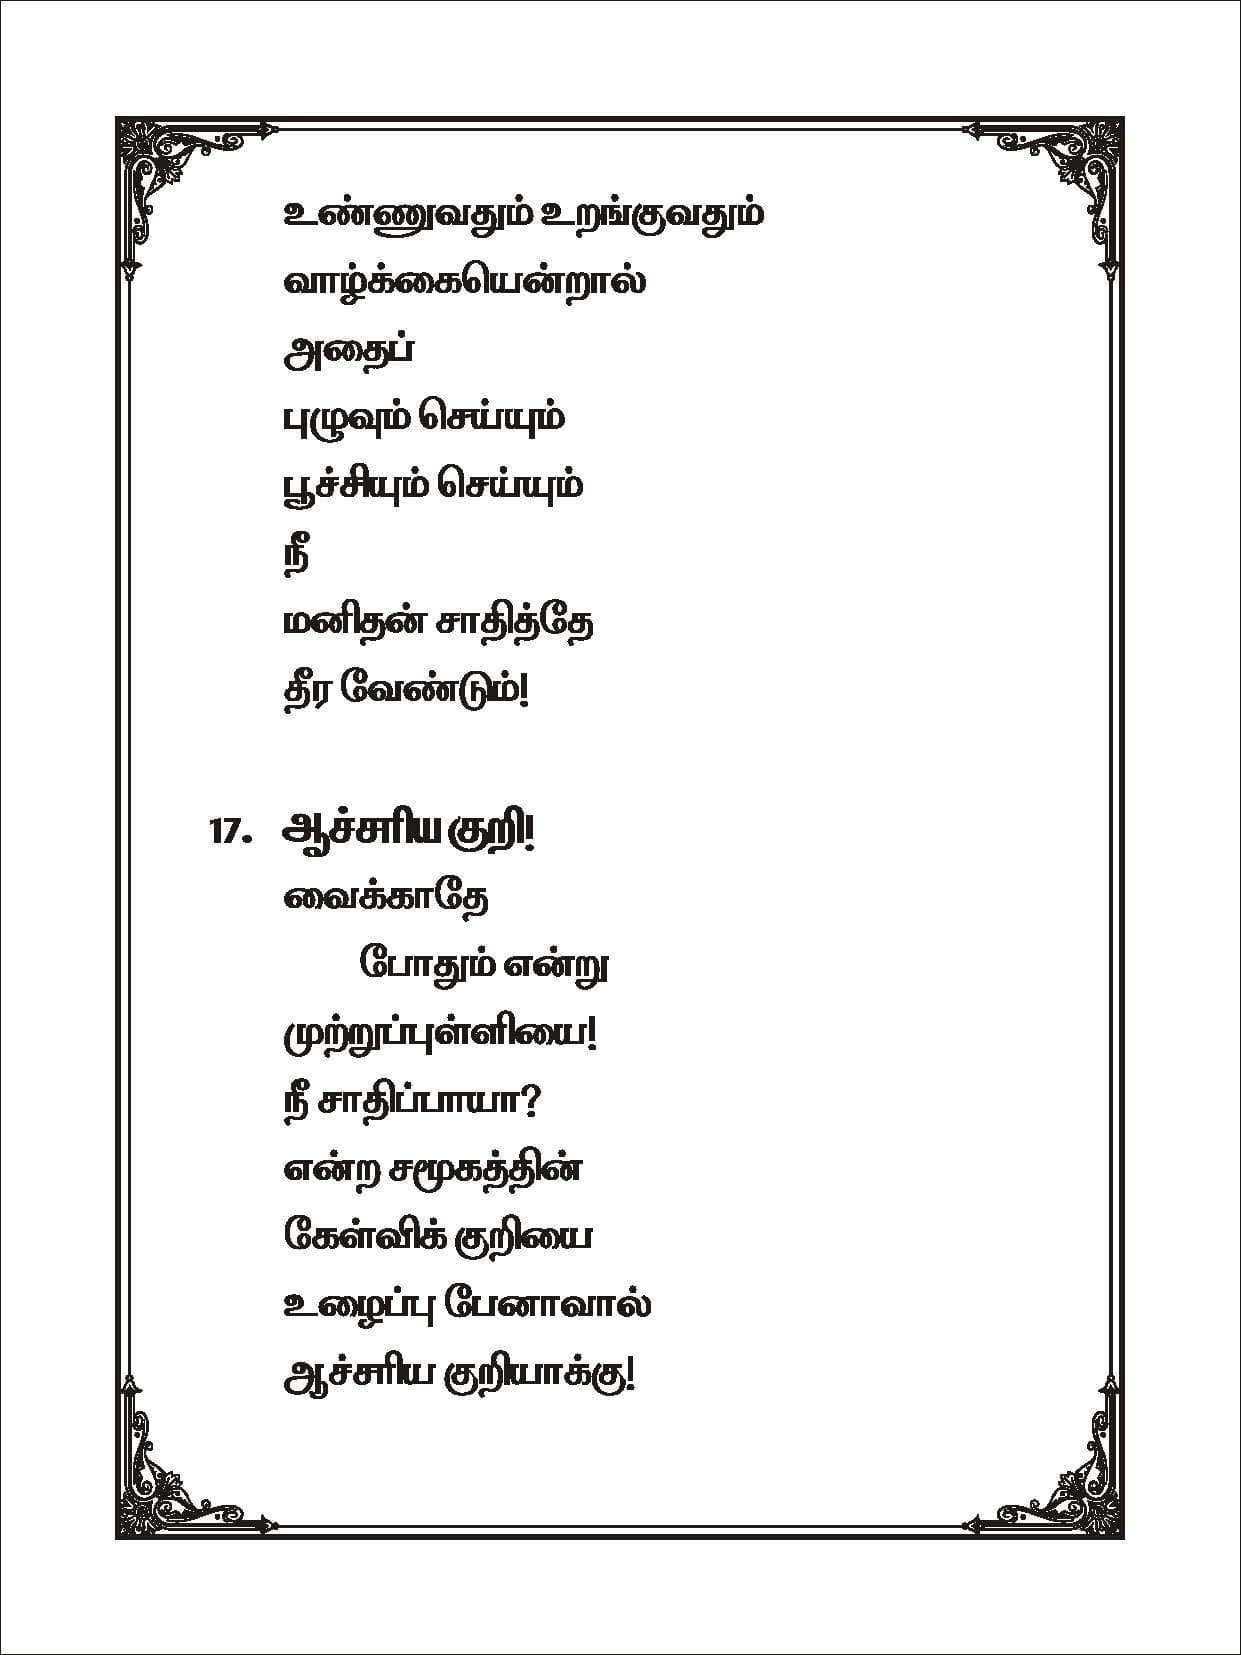 உண்ணுவதும் உறங்குவதும்
வாழ்க்கையென்றால்
அதைப்
புழுவும் செய்யும்
பூச்சியும் செய்யும்
நீ
மனிதன் சாதித்தே
தீர வேண்டும்!
17. ஆச்சரிய குறி!
வைக்காதே
போதும் என்று
முற்றுப்புள்ளியை!
நீ சாதிப்பாயா?
என்ற சமூகத்தின்
கேள்விக் குறியை
உழைப்பு பேனாவால்
ஆச்சரிய குறியாக்கு!